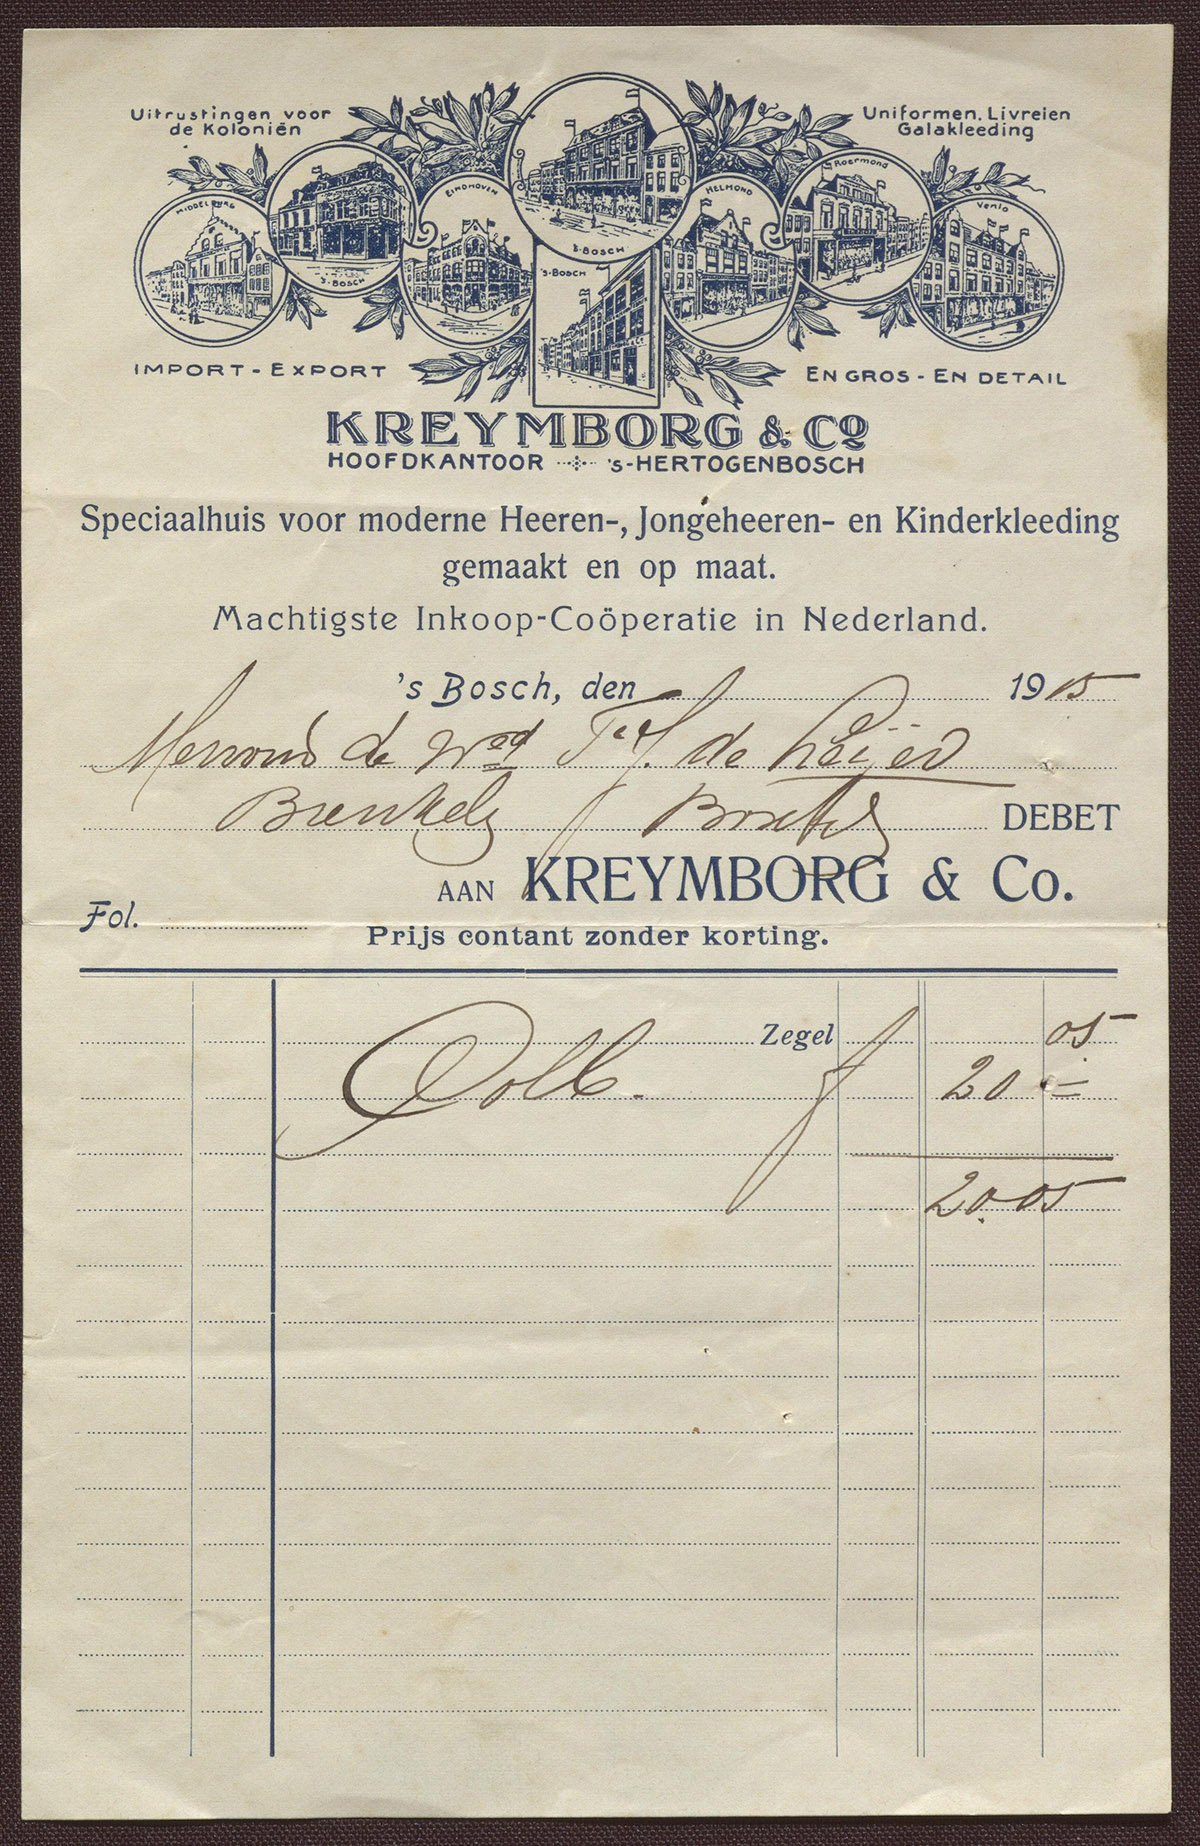 Uitrustingen voor
de Koloniën
Uniformen, Livreien
Galakleeding
MIDDELBURG
'S-BOSCH
EINDHOVEN
'S-BOSCH
'S-BOSCH
HELMOND
ROERMOND
VENLO
IMPORT - EXPORT
EN GROS - EN DETAIL
KREYMBORG & Co
HOOFDKANTOOR 's-HERTOGENBOSCH
Speciaalhuis voor moderne Heeren-, Jongeheeren- en Kinderkleeding
gemaakt en op maat.
Machtigste Inkoop-Coöperatie in Nederland.
's Bosch, den 1915
de Wed de
DEBET
AAN KREYMBORG & Co.
Fol.
Prijs contant zonder korting.
Zegel 05
f 20 =
20.05